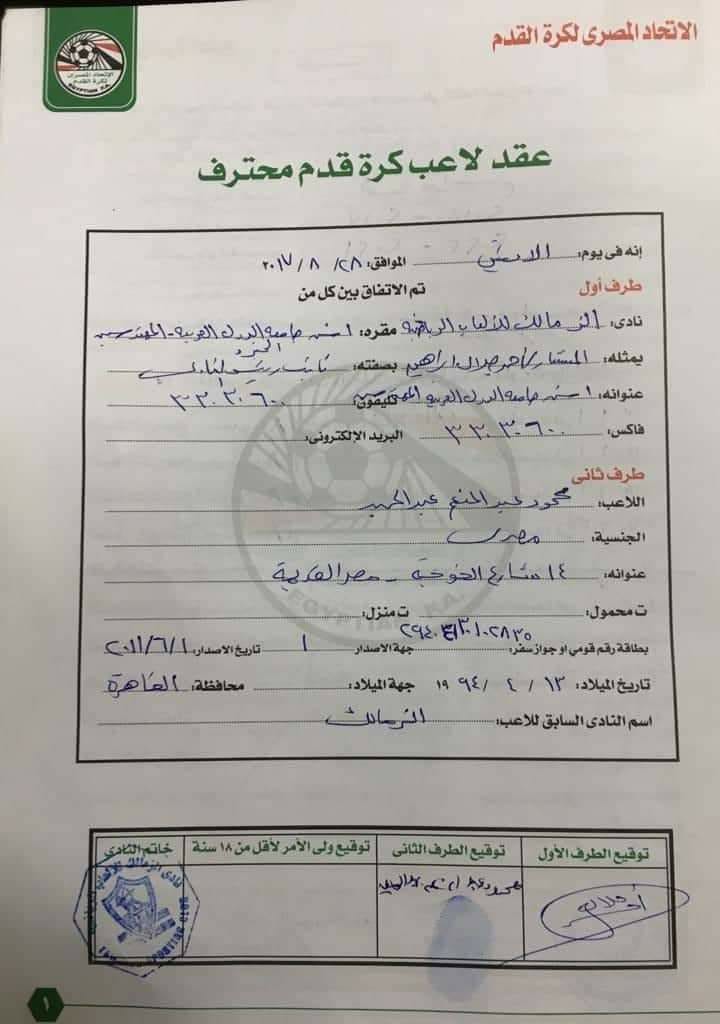 الاتحاد المصرى لكرة القدم
الاتحاد المصرى
لكرة القدم
EGYPTIAN F.A.
عقد لاعب كرة قدم محترف
إنه فى يوم: الاثنين الموافق: ٢٨ / ٨ / ٢٠١٧
طرف أول تم الاتفاق بين كل من
نادى: الزمالك للألعاب الرياضية مقره: ١ ش جامعة الدول العربية - المهندسين
يمثله: المستشار / احمد جلال ابراهيم بصفته: نائب رئيس النادى
عنوانه: ١ ش جامعة الدول العربية المهندسين تليفون: ٣٣٠٣٠٦٠٠
فاكس: ٣٣٠٣٠٦٠٠ البريد الإلكترونى:
طرف ثانى
اللاعب: محمود عبد المنعم عبد الحميد
الجنسية: مصرى
عنوانه: ١٤ شارع - مصر القديمة
EGYPTIAN F.A.
ت محمول: ت منزل:
بطاقة رقم قومي او جواز سفر: جهة الاصدار ١ تاريخ الاصدار: ٢٠١١/٦/١
تاريخ الميلاد: ١٣ / ٤ / ١٩٩٤ جهة الميلاد: محافظة: القاهرة
اسم النادى السابق للاعب: الزمالك
توقيع الطرف الأول توقيع الطرف الثانى توقيع ولى الأمر لأقل من ١٨ سنة خاتم النادى
محمود عبد المنعم عبد الحميد
نادى الزمالك للألعاب الرياضية
١